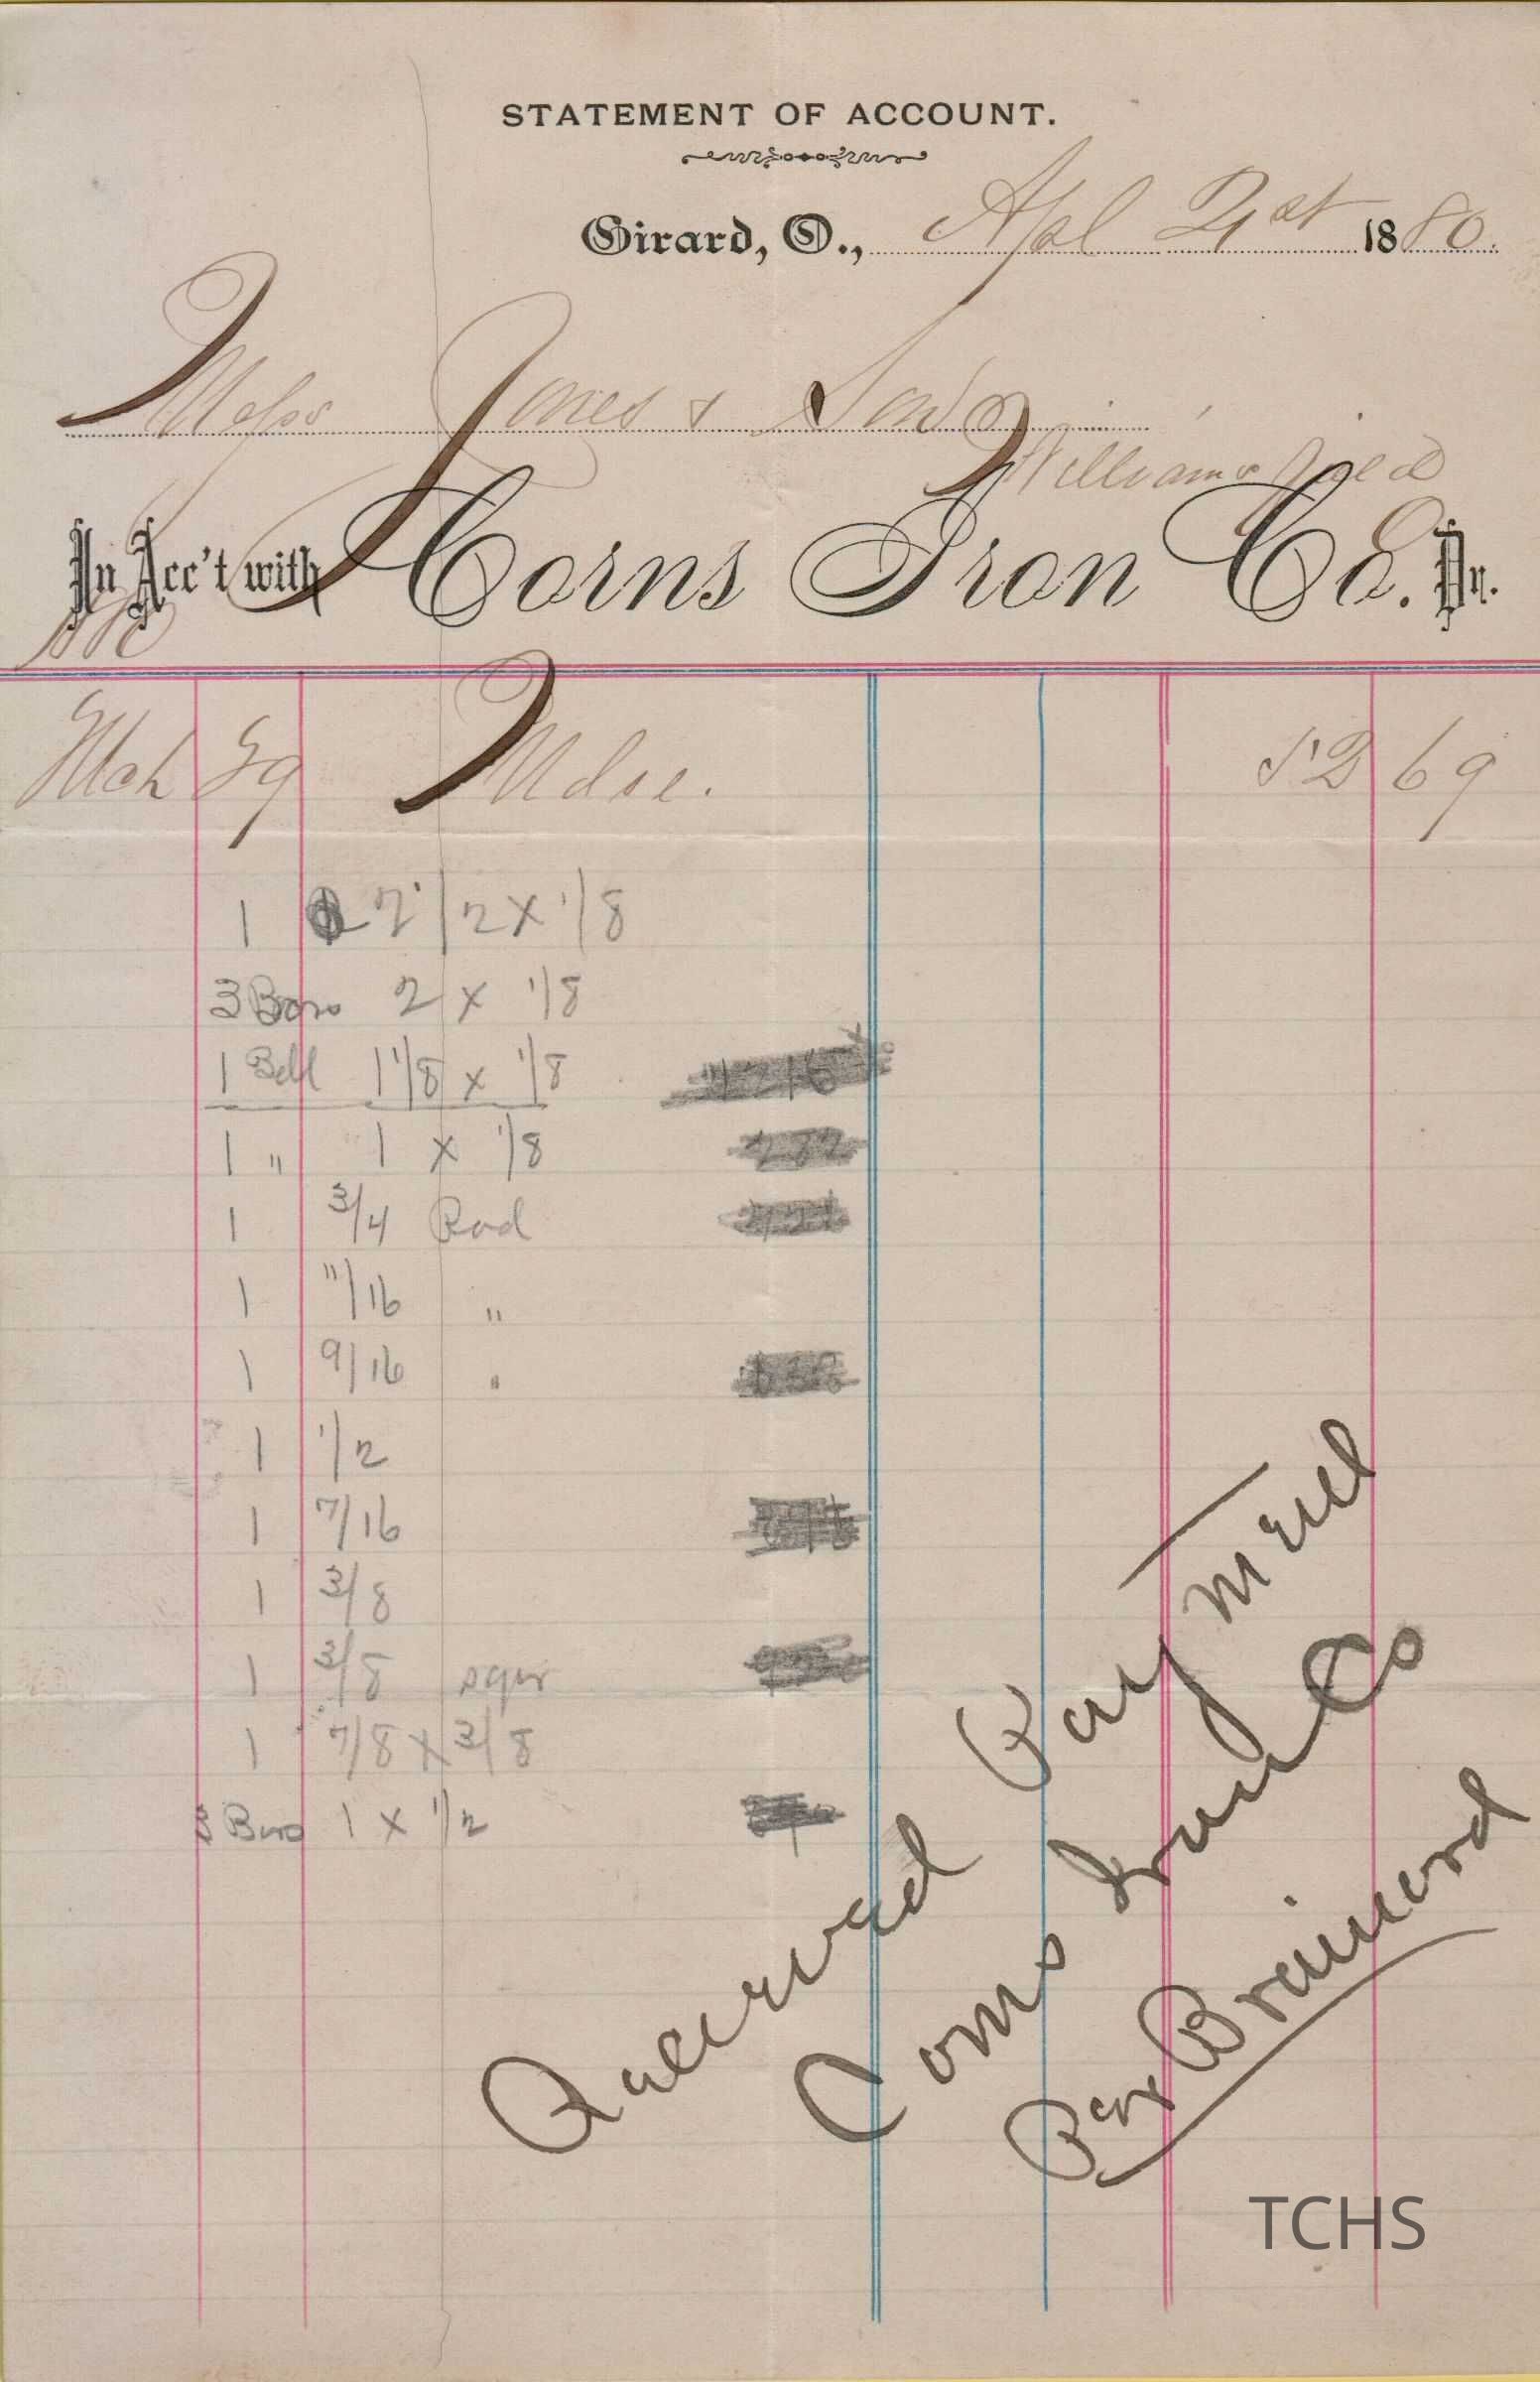 STATEMENT OF ACCOUNT.
Girard, O., Apl 21st 1880.
Mess Jones & Sons
Williamsfield
O
In Acc't with Corns Iron Co. Dr.
1880
Mch 29 Mdse. 52 69
1 2 1/2 x 1/8
3 Bars 2 x 1/8
1 Bdl 1 1/8 x 1/8
1 " 1 x 1/8
1 3/4 Rod
1 11/16 "
1 9/16 "
1 1/2
1 7/16
1 3/8
1 3/8 sqr
1 7/8 x 3/8
3 Bars 1 x 1/2
Received Payment
Corns Iron Co
Per Brainard
TCHS